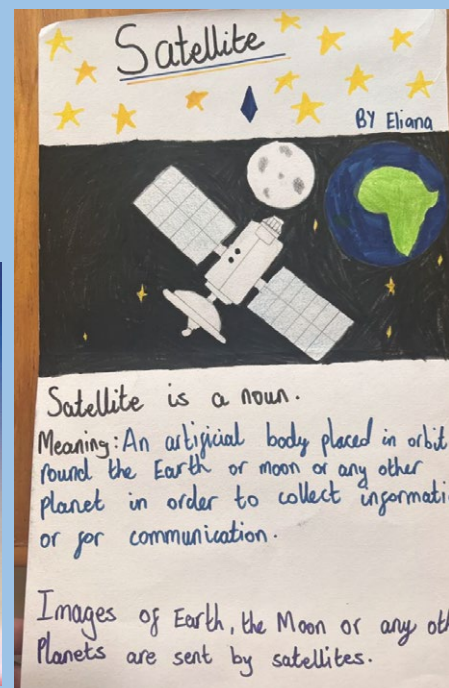 Satellite
BY Eliana
Satellite is a noun.
Meaning: An artificial body placed in orbit
round the Earth or moon or any other
planet in order to collect informati
or for communication.
Images of Earth, the Moon or any oth
Planets are sent by satellites.